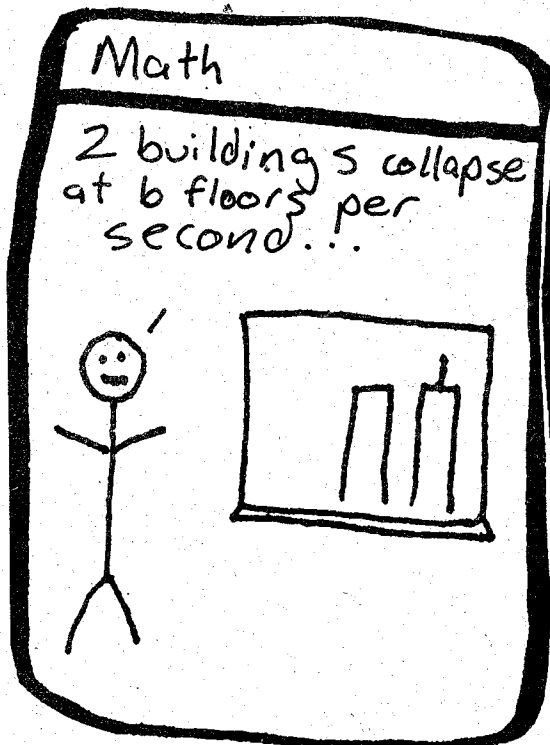 Math
2 buildings collapse
at 6 floors per
second...